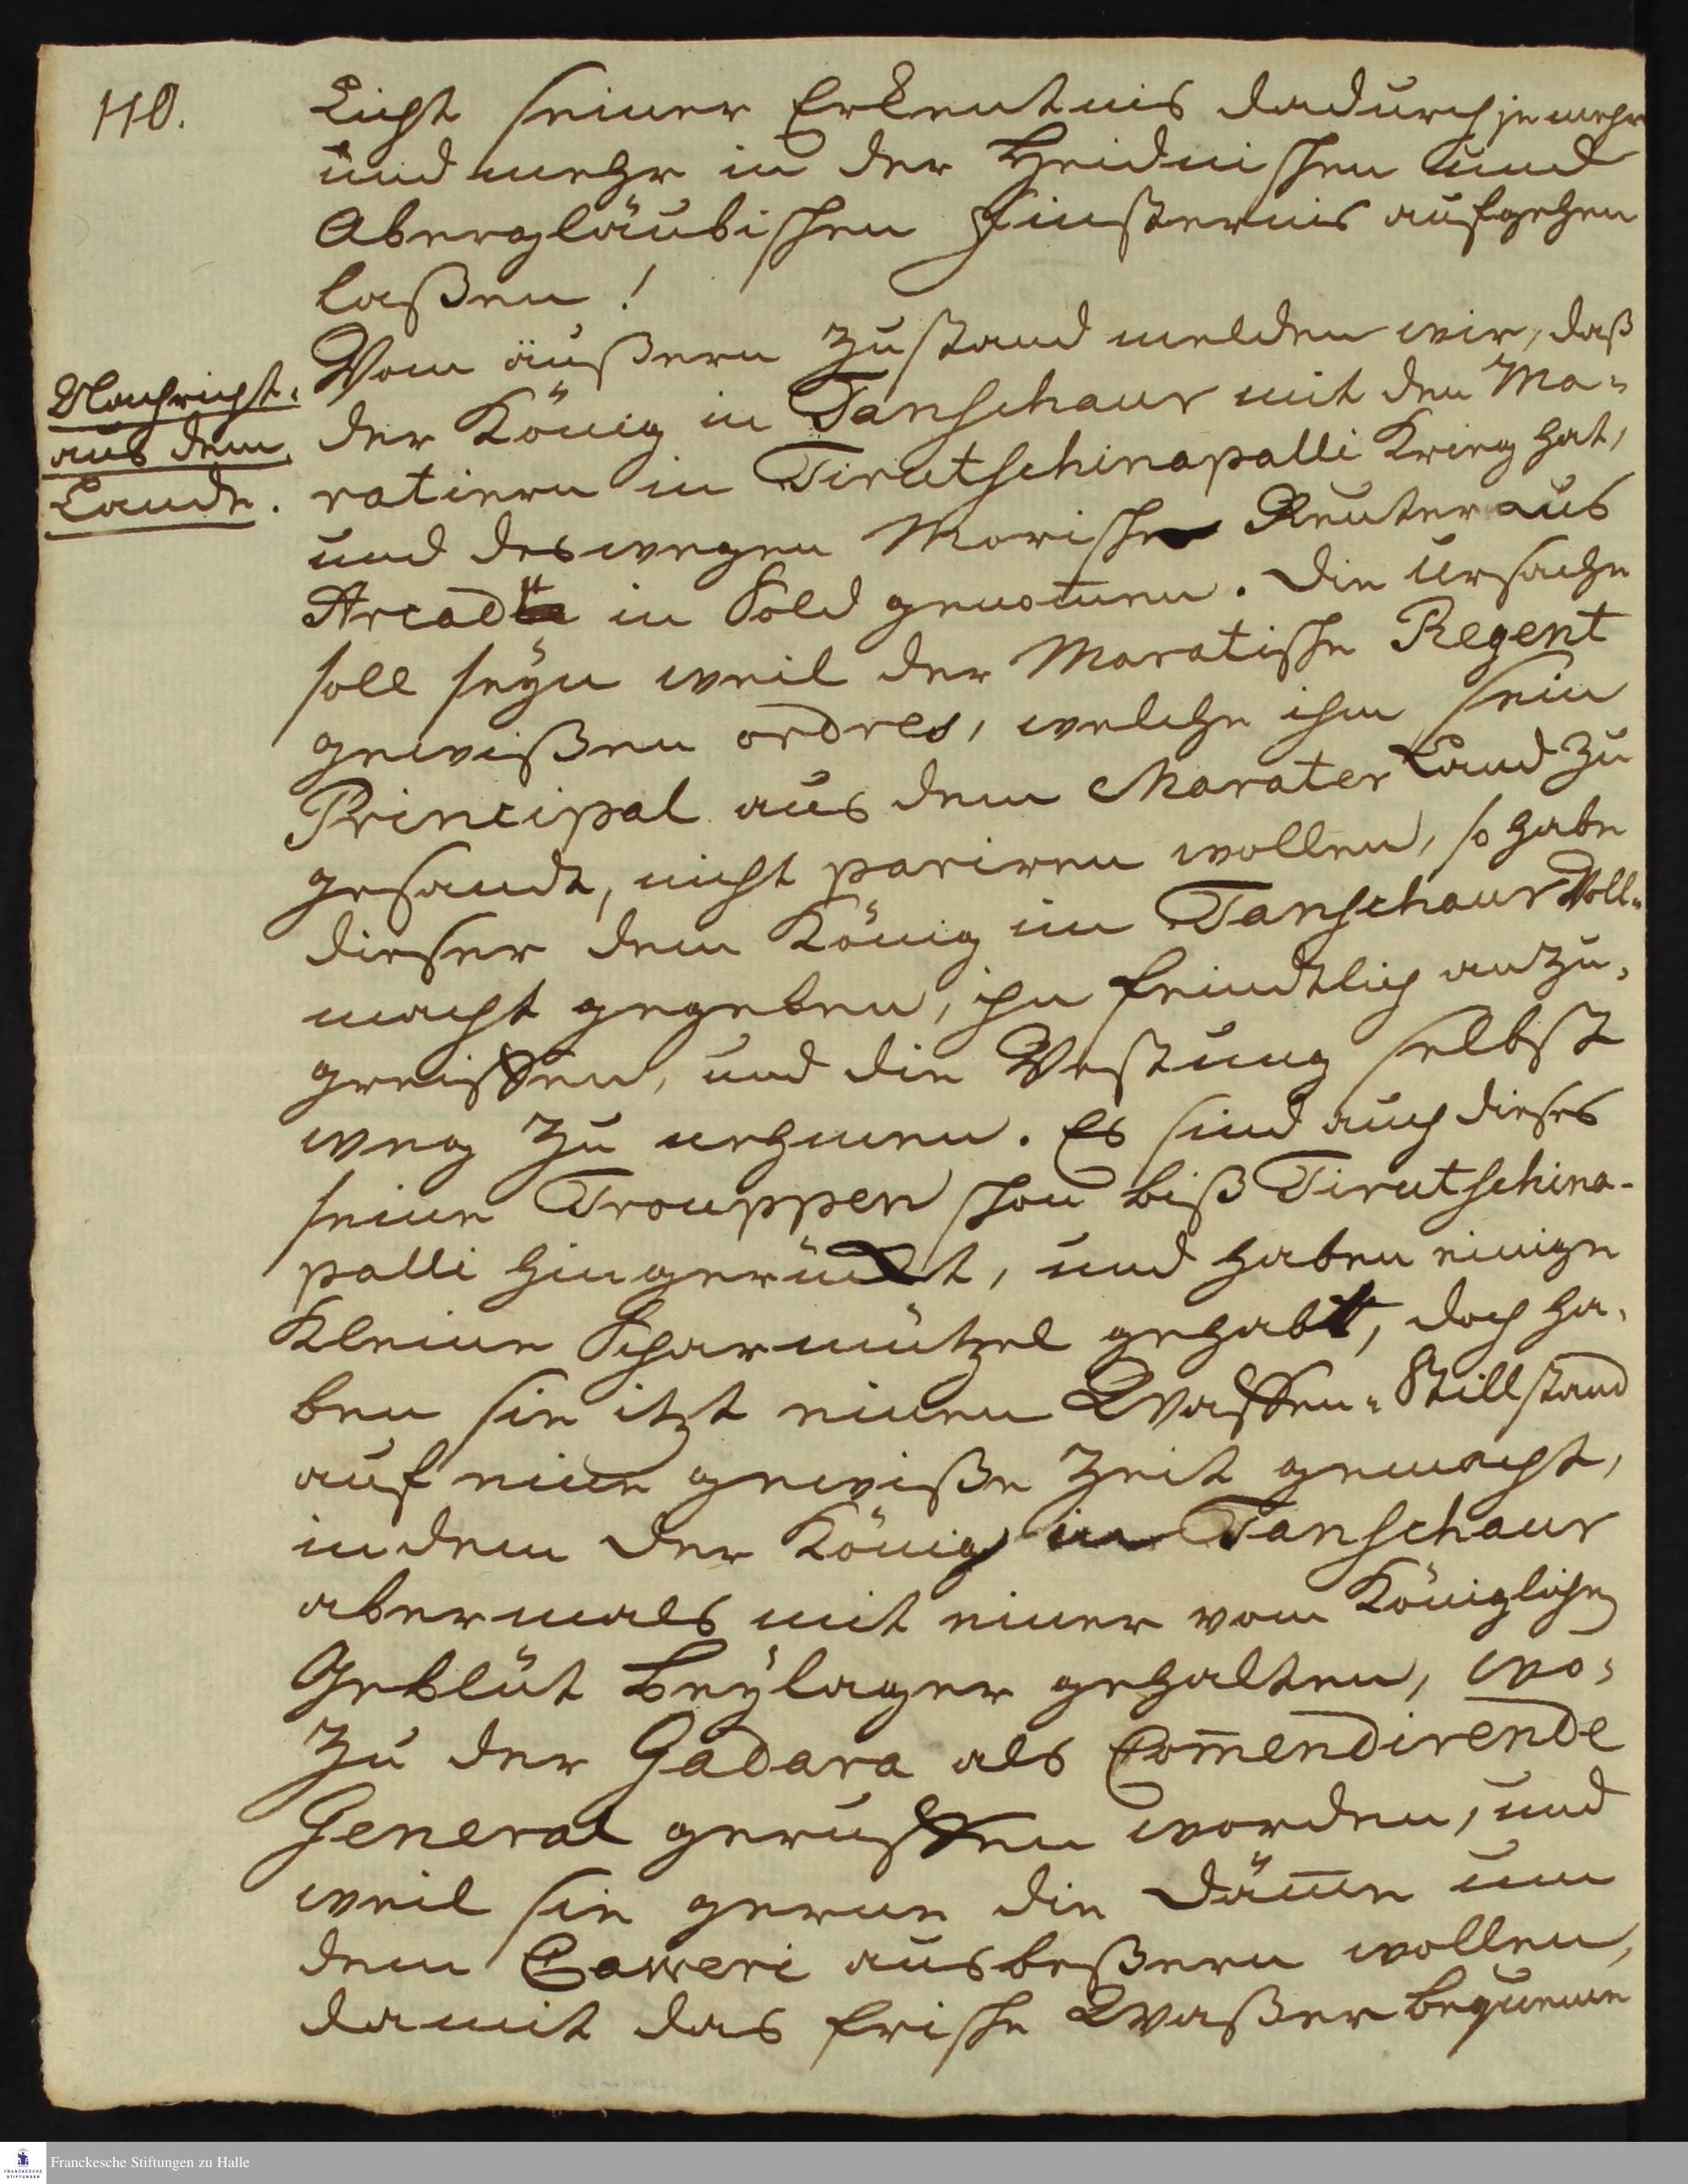 110.
Licht seiner Erkentnis dadurch je mehr
und mehr in der Heidnischen und
Abergläubischen Finsternis aufgehen
laßen!
Nachricht
aus dem
Lande.
Vom äußern Zustand melden wir, daß
der König in Tanschaur mit den Ma-
ratiern in Tirutschinapalli Krieg hat,
und deswegen Morische Reuter aus
Arcadu in Sold genom̄en. Die Ursache
soll seÿn weil der Maratische Regent
gewißen ordres, welche ihm sein
Principal aus dem Marater Land zu
gesandt, nicht pariren wollen, so habe
dieser dem König im Tanschaur Voll-
macht gegeben, ihn feindtlich anzu-
greiffen, und die Vestung selbst
weg zu nehmen. Es sind auch dieses
seine Trouppen schon biß Tirutschina-
palli hingerückt, und haben einige
kleine Scharmützel gehabt, doch ha-
ben sie itzt einen Waffen-Stillstand
auf eine gewiße Zeit gemacht,
indem der König in Tanschaur
abermals mit einer vom Königlichen
Geblüt Beÿlager gehalten, wo-
zu der Gadara als Com̄endirende
General geruffen worden, und
weil sie gerne die Däm̄e um
dem Caweri ausbeßern wollen,
damit das frische Waßer bequeme
Franckesche Stiftungen zu Halle